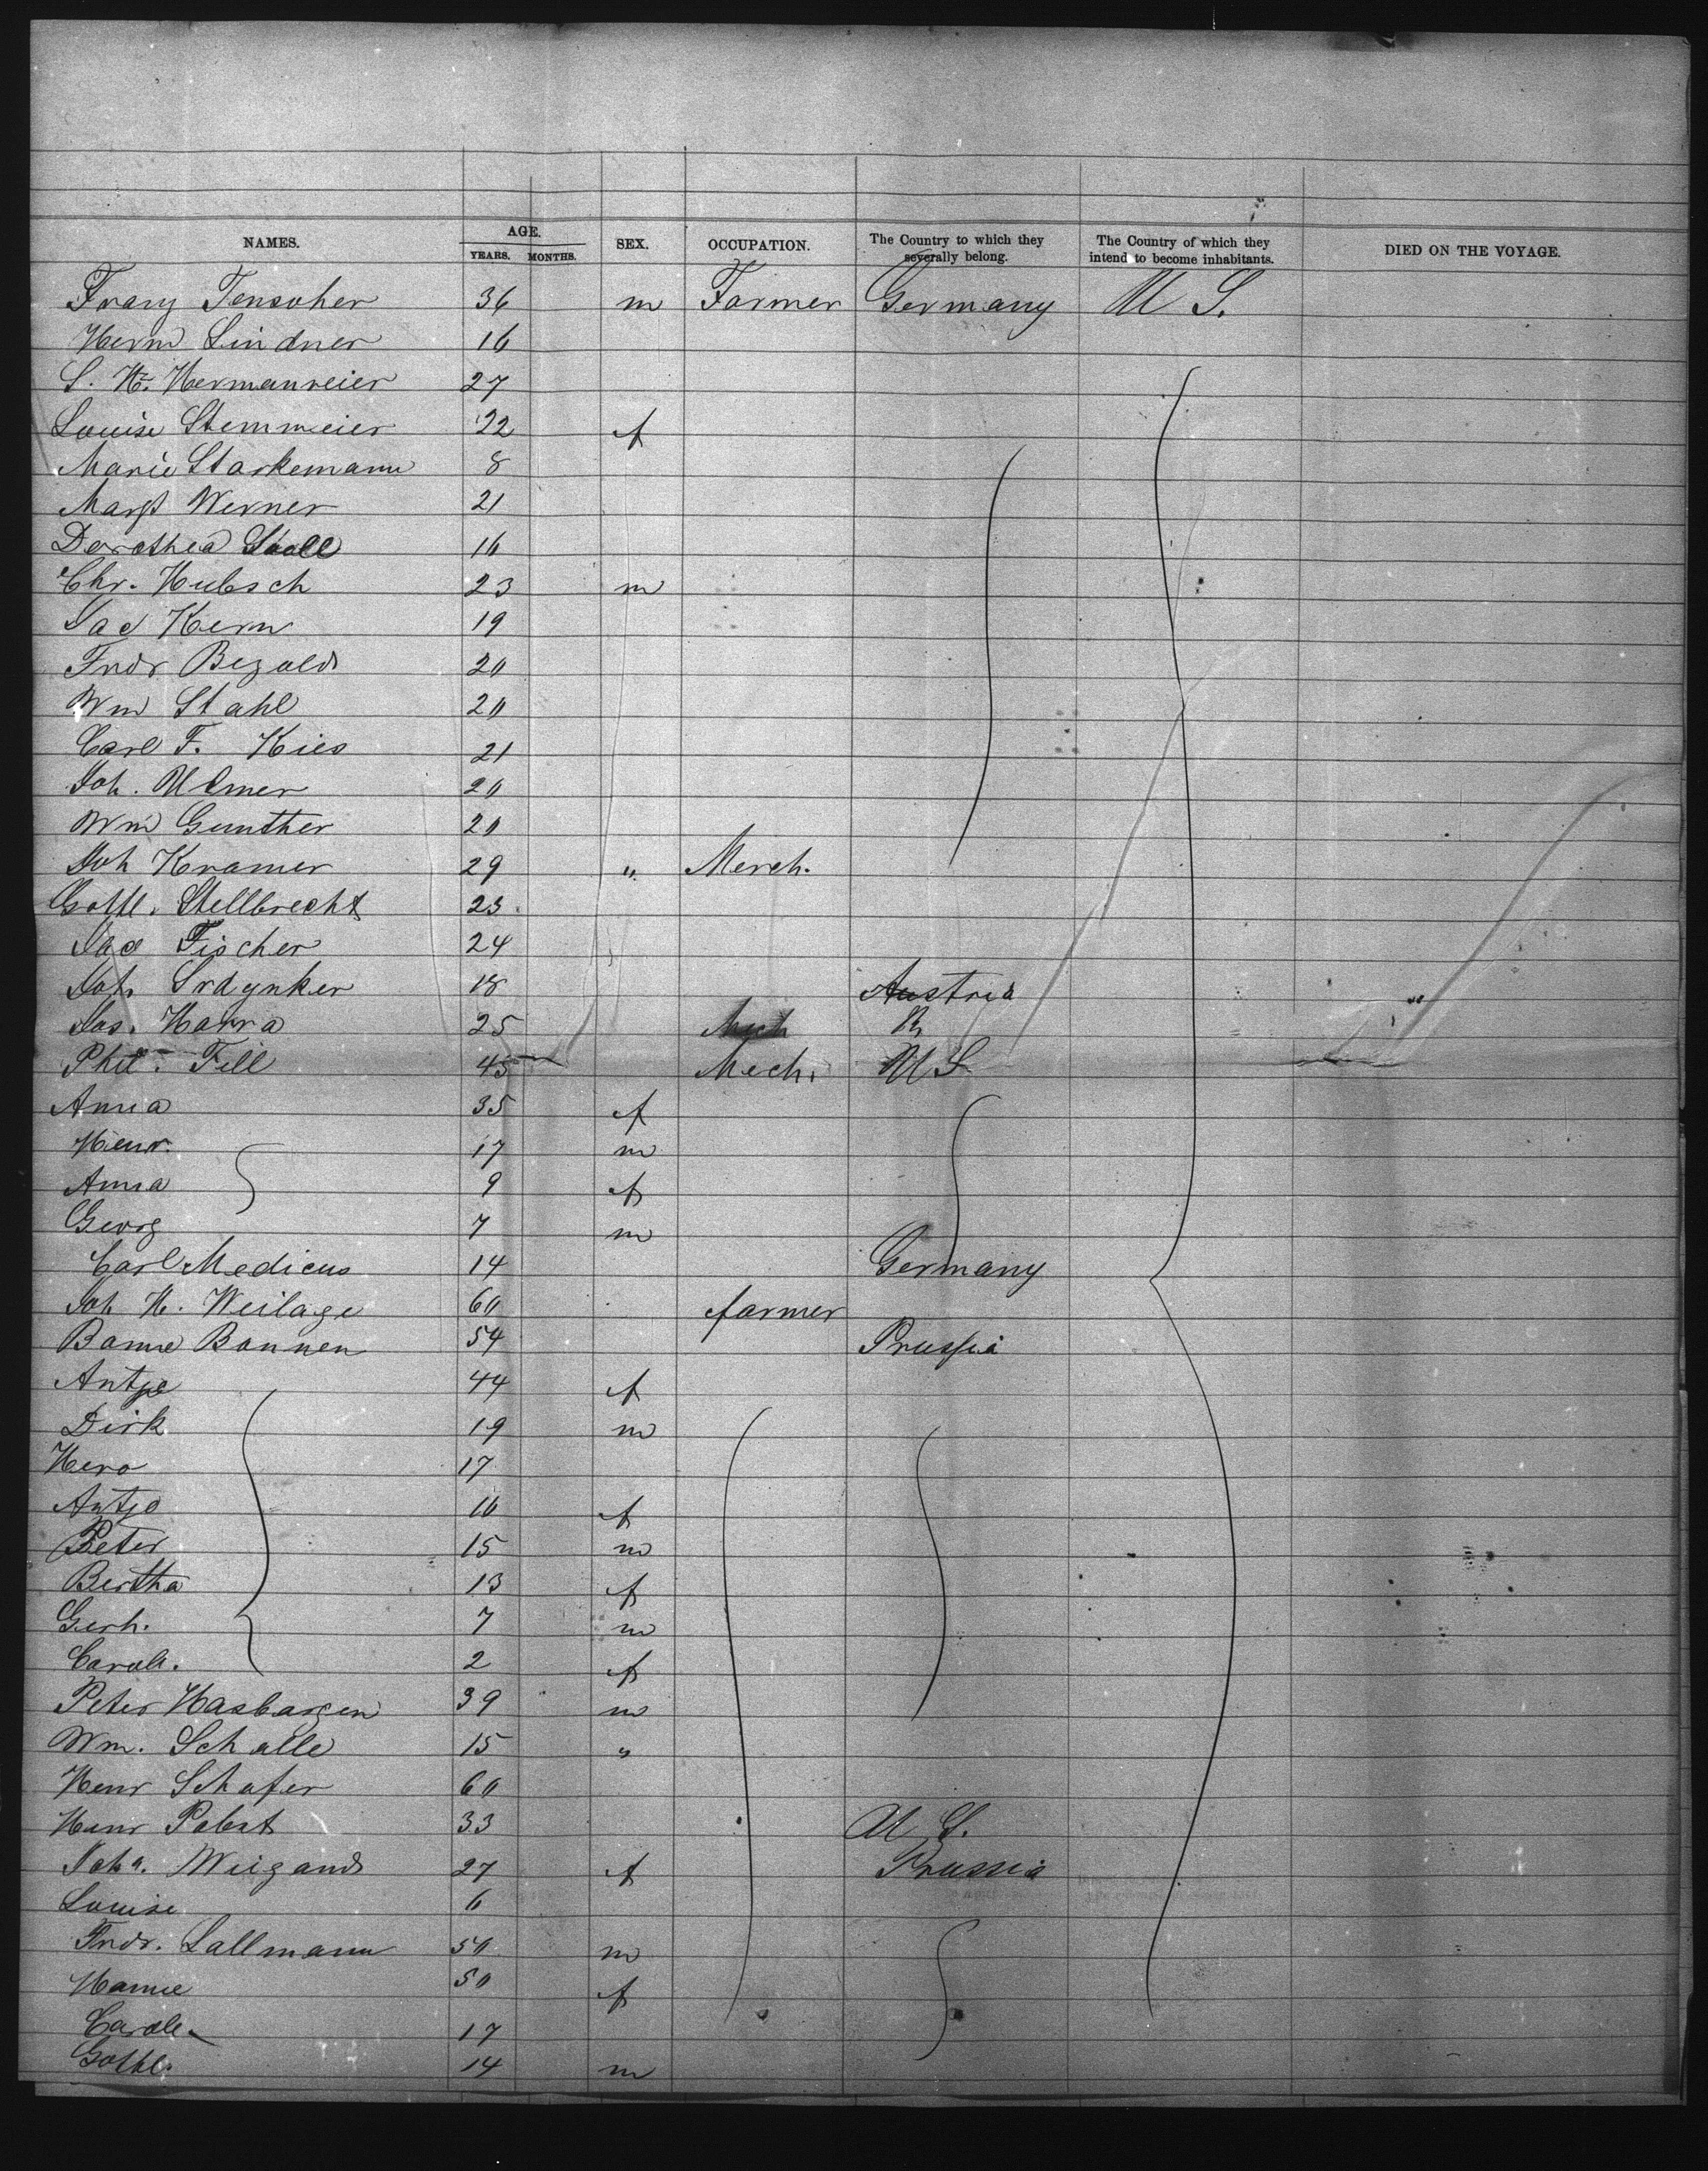 NAMES. AGE. YEARS. MONTHS. SEX. OCCUPATION. The Country to which they severally belong. The Country of which they intend to become inhabitants. DIED ON THE VOYAGE.
Franz 36 m Farmer Germany U S.
Herm Lindner 16
27
Louise Stemmeier 22 f
Marie Starkemann 8
Margt Werner 21
Dorothea 16
Chr. Hubsch 23 m
Jac Kern 19
Fredr Bezold 20
Wm Stahl 20
Carl F. Kies 21
Joh. Ulmer 20
Wm Gunther 20
Joh Kramer 29 " Merch.
Gottl. Stellbrecht 23
Jac Fischer 24
Joh 18 Austria
Jos. 25
Phil. Fill 45 Mech. U S
Anna 35 f
Henr. 17 m
Anna 9 f
Georg 7 m
Carl Medicus 14 Germany
Joh H. Weilage 60 farmer
Banne Bannen 54 Prussia
Antje 44 f
Dirk 19 m
Hero 17
Antje 10 f
Peter 15 m
Bertha 13 f
Gerh. 7 m
Carol. 2 f
Peter Hasbargen 39 m
Wm. Schalle 15 "
Henr Schafer 60
Henr Pabst 33 U S.
Joha. Weigand 27 f Prussia
Louise 6
Fredr. Lallmann 50 m
Hanne 50 f
Carol. 17
Gottl. 14 m